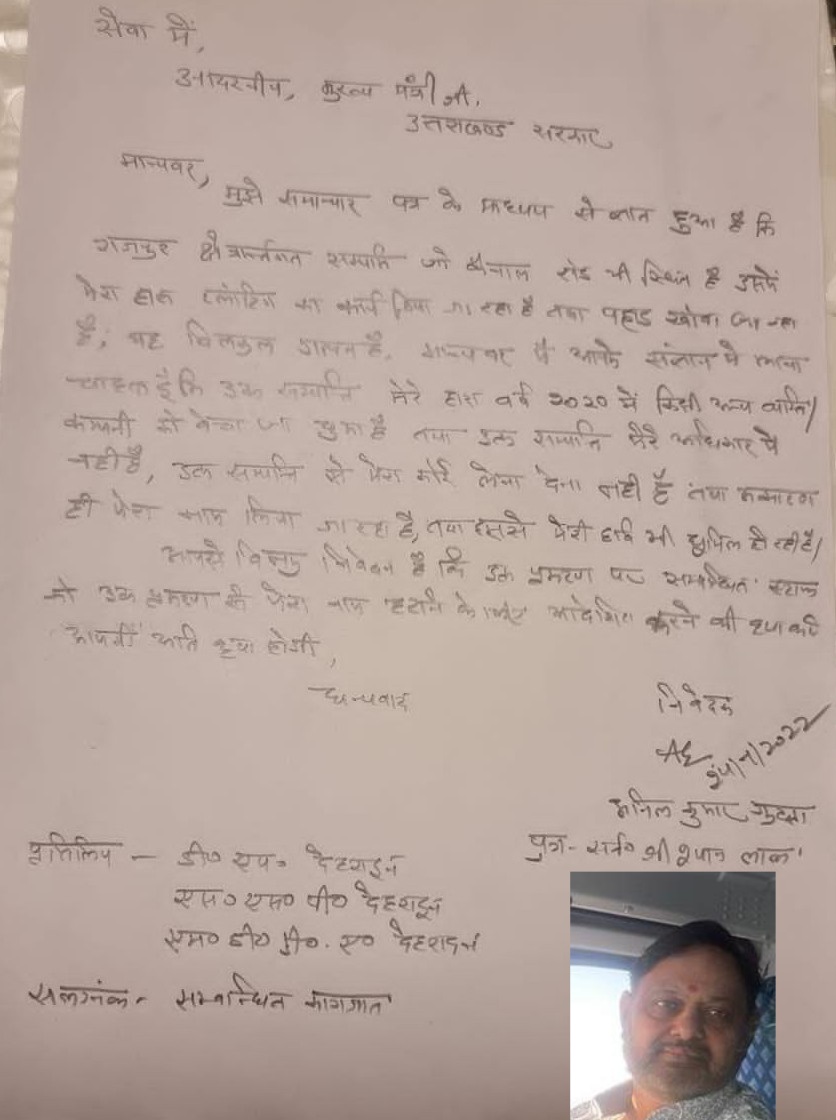 सेवा में,
आदरणीय, मुख्य मंत्री जी,
उत्तराखण्ड सरकार
मान्यवर,
मुझे समाचार पत्र के माध्यम से ज्ञात हुआ है कि
राजपुर क्षेत्रान्तर्गत सम्पत्ति जो रोड भी स्थित है उसमें
मेरा द्वारा प्लोटिंग का कार्य किया जा रहा है तथा पहाड़ खोदा जा रहा
है, यह बिलकुल गलत है, मान्यवर मैं आपके संज्ञान में लाना
चाहता हूँ कि उक्त सम्पत्ति मेरे द्वारा वर्ष 2020 में किसी अन्य व्यक्ति/
कम्पनी को बेचा जा चुका है तथा उक्त सम्पत्ति मेरे अधिकार में
नहीं है, उक्त सम्पत्ति से मेरा कोई लेना देना नहीं है तथा
ही मेरा नाम लिया जा रहा है, तथा इससे मेरी छवि भी धूमिल हो रही है/
आपसे विनम्र निवेदन है कि उक्त प्रकरण पर सम्बन्धित स्टाफ
को उक्त प्रकरण से मेरा नाम हटाने के लिए आदेशित करने की कृपा करें
आपकी अति कृपा होगी,
धन्यवाद
निवेदक
अनिल कुमार गुप्ता
पुत्र- स्व० श्री लाल
प्रतिलिपि - डी० एम० देहरादून
एस० एस० पी० देहरादून
एम० डी० डी०. ए० देहरादून
संलग्नक - सम्बन्धित कागजात